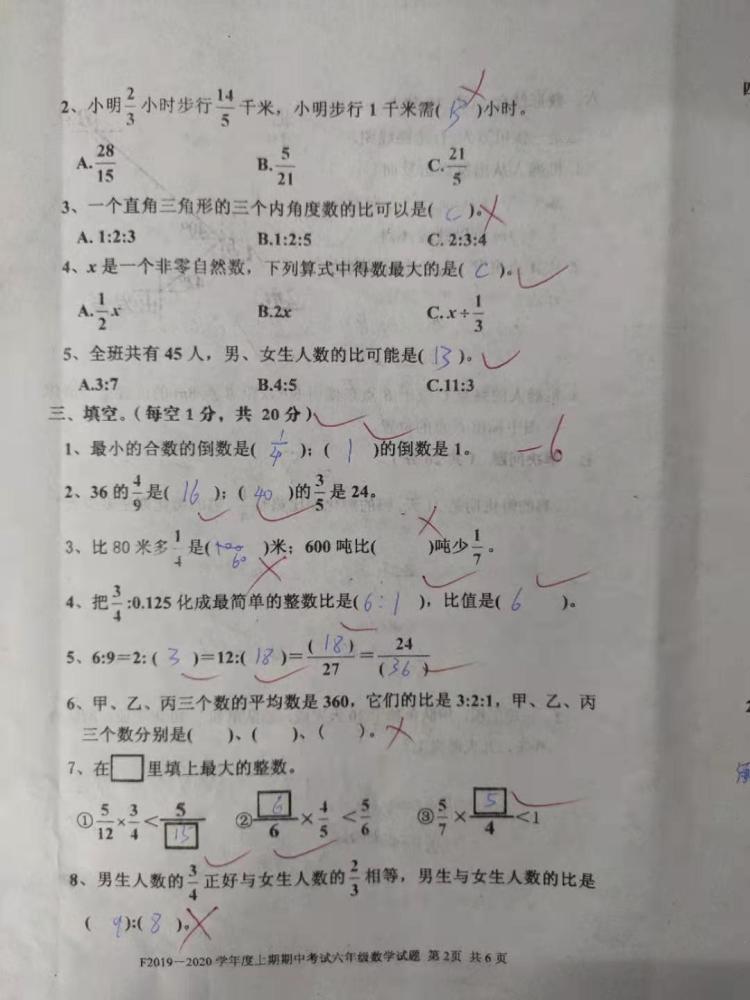 2、小明2/3小时步行14/5千米，小明步行1千米需( B )小时。
A. 28/15 B. 5/21 C. 21/5
3、一个直角三角形的三个内角度数的比可以是( C )。
A. 1:2:3 B.1:2:5 C. 2:3:4
4、x是一个非零自然数，下列算式中得数最大的是( C )。
A. 1/2 x B.2x C. x÷1/3
5、全班共有45人，男、女生人数的比可能是( B )。
A.3:7 B.4:5 C.11:3
三、填空。（每空1分，共 20分）
1、最小的合数的倒数是( 1/4 )；( 1 )的倒数是1。 -6
2、36的4/9是( 16 )；( 40 )的3/5是24。
3、比80米多1/4是( 60 )米；600吨比( )吨少1/7。
4、把3/4:0.125化成最简单的整数比是( 6:1 )，比值是( 6 )。
5、6:9＝2:( 3 )＝12:( 18 )＝( 18 )/27＝24/( 36 )
6、甲、乙、丙三个数的平均数是360，它们的比是3:2:1，甲、乙、丙
三个数分别是( )、( )、( )。
7、在□里填上最大的整数。
①5/12×3/4＜5/15 ②6/6×4/5＜5/6 ③5/7×5/4＜1
8、男生人数的3/4正好与女生人数的2/3相等，男生与女生人数的比是
( 9 ):( 8 )。
F2019—2020学年度上期期中考试六年级数学试题 第2页 共6页